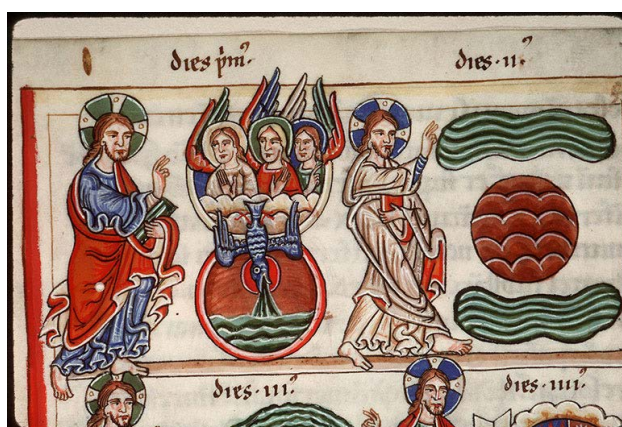 dies pͥmꝰ·
dies·iiꝰ·
dies·iiiꝰ·
dies·iiiiꝰ·